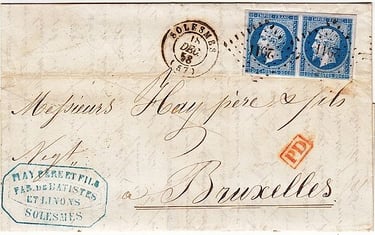 SOLESMES
15
DEC.
58
(57)
EMPIRE FRANC
EMPIRE FRANC
Messieurs Hay père & fils
Negt
PD
à Bruxelles
MAY PERE ET FILS
FAB. DE BATISTES
ET LINONS
SOLESMES